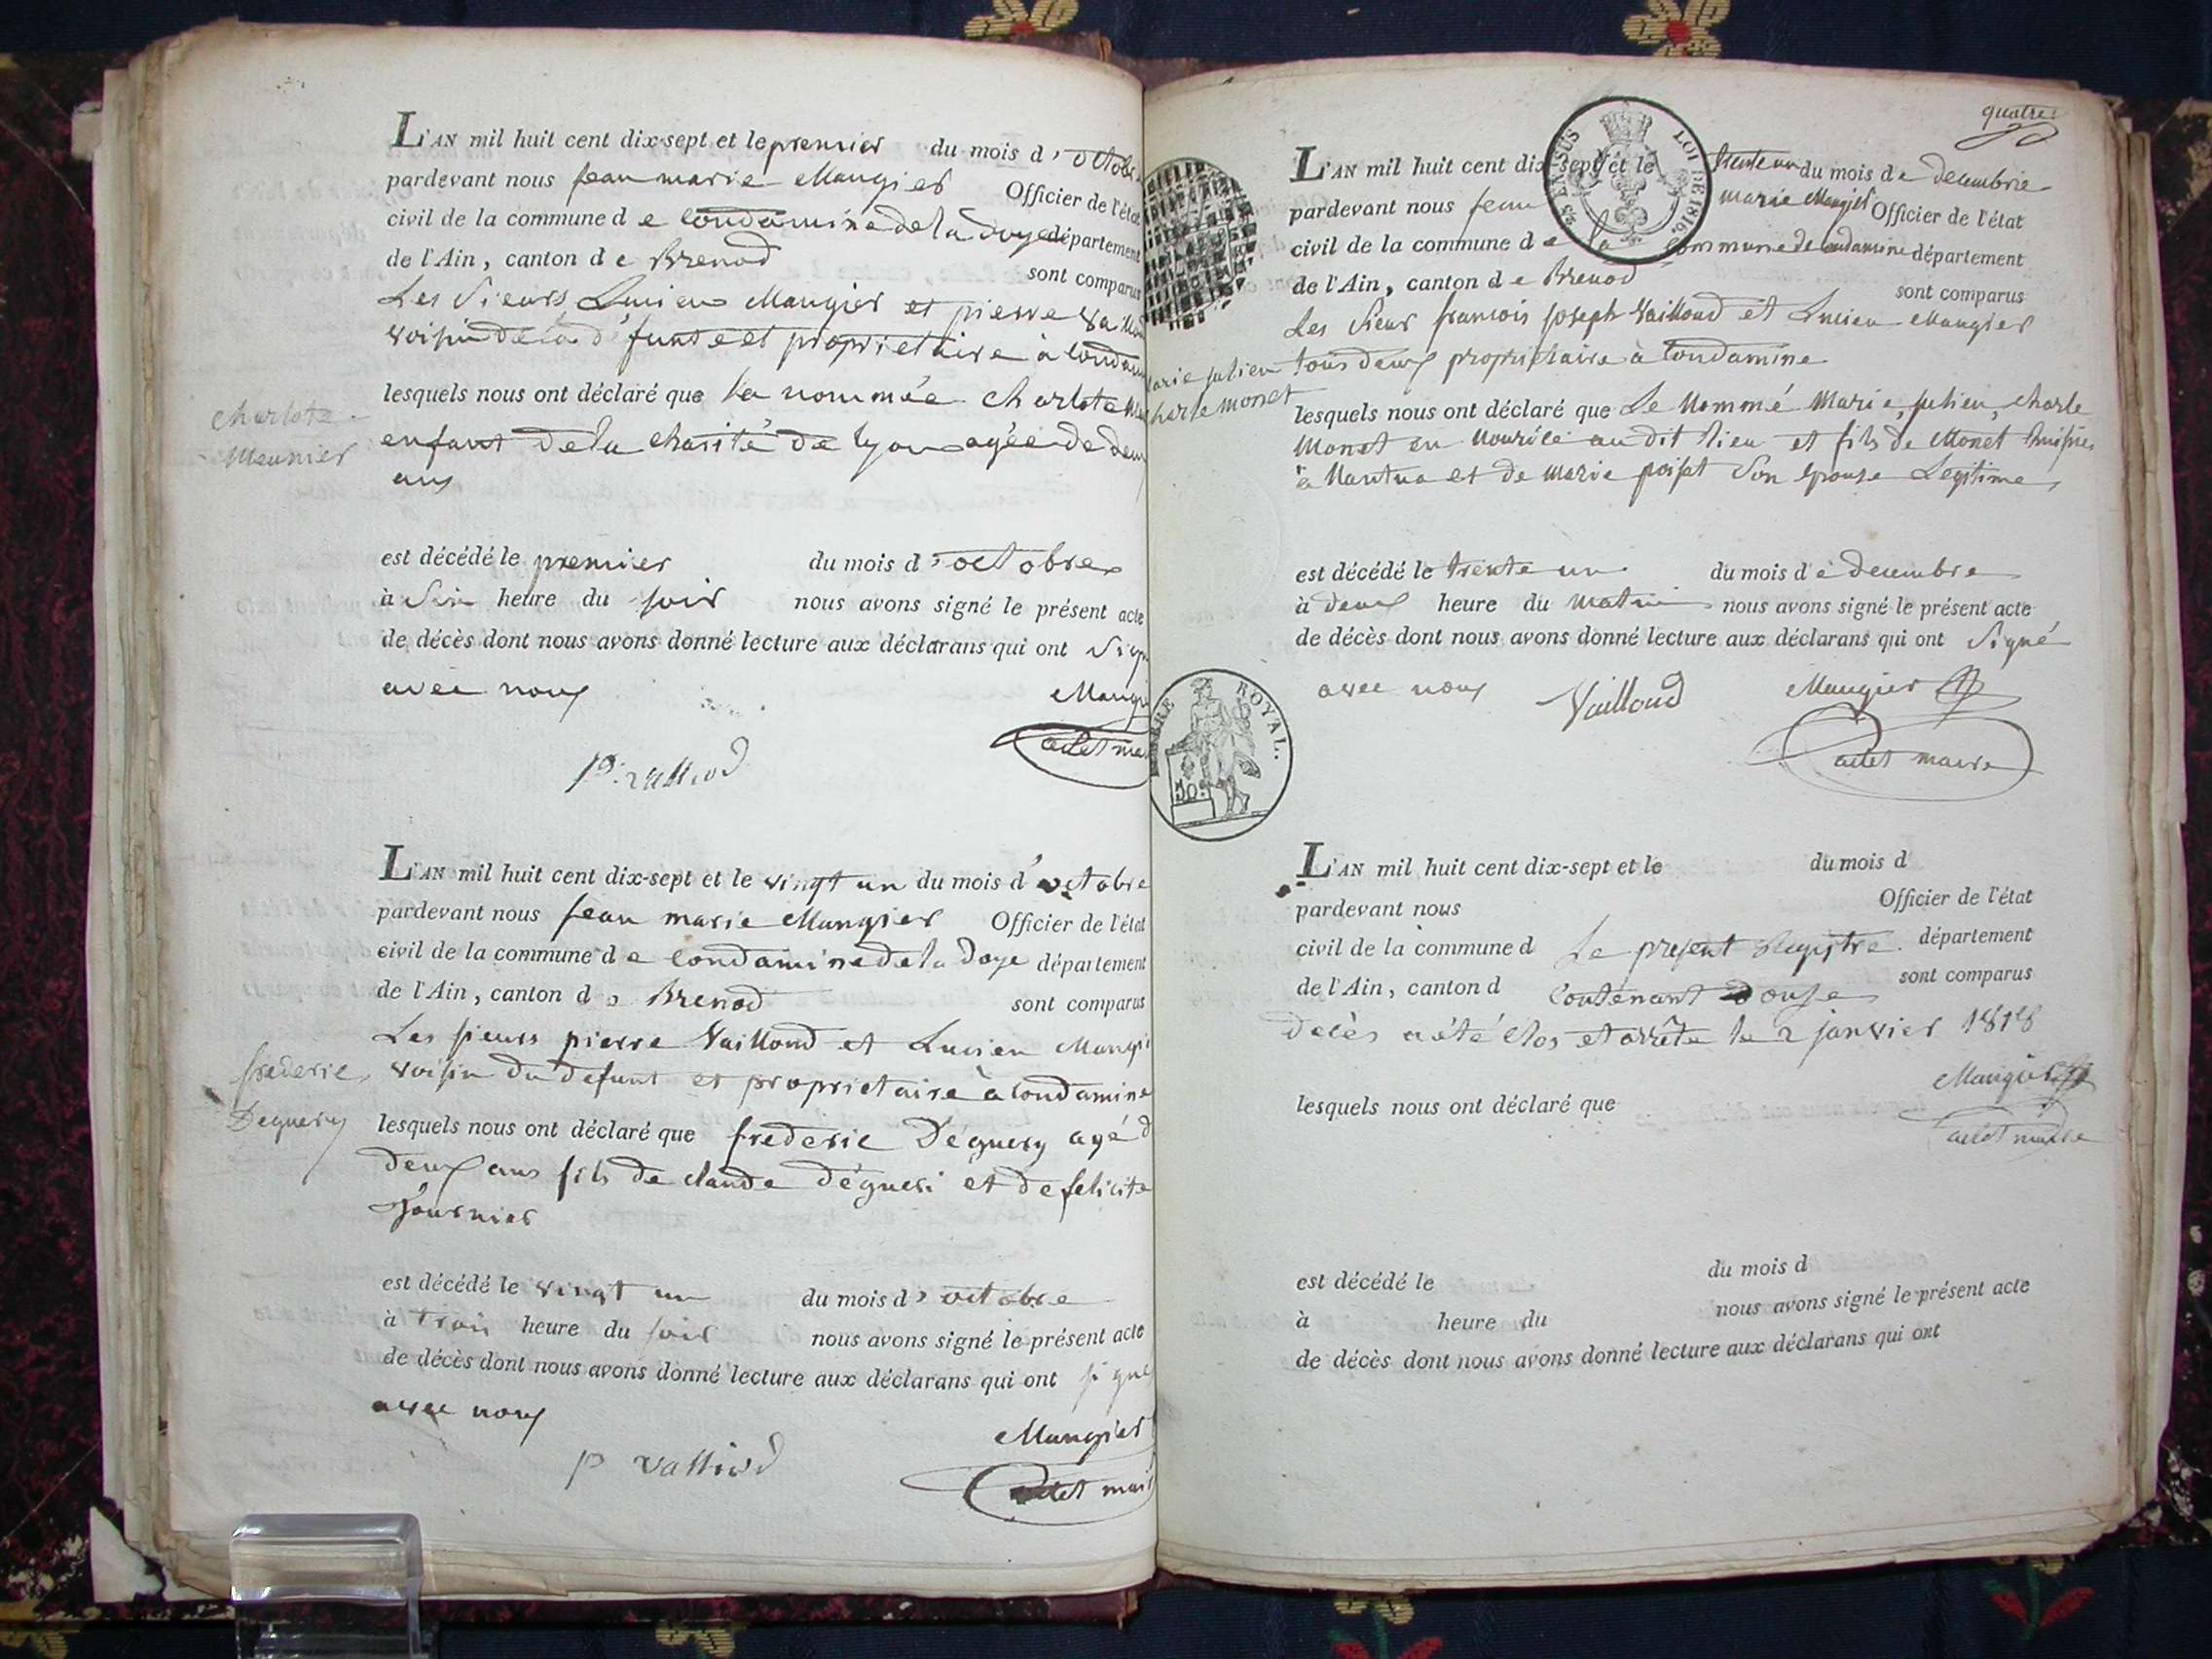 L'AN mil huit cent dix-sept et le premier du mois d'octobre
pardevant nous jean marie Maugier Officier de l'état
civil de la commune de Condamine de la doye département
de l'Ain, canton de Brenod sont comparus
Les Sieurs Lucien Maugier et pierre
voisin de la défunte et proprietaire à
lesquels nous ont déclaré que la nommée Charlote
Charlote
Meunier
enfant de la charité de lyon agée de deux
ans
est décédé le premier du mois d'octobre
à Six heure du soir nous avons signé le présent acte
de décès dont nous avons donné lecture aux déclarans qui ont
avec nous
cadet
L'AN mil huit cent dix-sept et le vingt un du mois d'octobre
pardevant nous jean marie Maugier Officier de l'état
civil de la commune de Condamine de la Doye département
de l'Ain, canton de Brenod sont comparus
Les sieurs pierre Vailloud et Lucien
frederic
Deguery
voisin du defunt et proprietaire à Condamine
lesquels nous ont déclaré que frederic Déguery agé d
deux ans fils de claude Dégueri et de felicite
fournier
est décédé le vingt un du mois d'octobre
à trois heure du soir nous avons signé le présent acte
de décès dont nous avons donné lecture aux déclarans qui ont signé
avec nous
Maugier
cadet
quatre
L'AN mil huit cent dix-sept et le trente un du mois de decembre
pardevant nous jean marie Maugier Officier de l'état
civil de la commune de la commune de Condamine département
de l'Ain, canton de Brenod sont comparus
LOI DE 1816.
Les Sieur francois joseph Vailloud et Lucien Maugier
tous deux proprietaire à Condamine
julien
charle monet
lesquels nous ont déclaré que Le Nommé Marie, julien, charle
Monet en Nourice au dit lieu et fils de Monet huissier
à Nantua et de marie poisat Son epouse Legitime
est décédé le trente un du mois de decembre
à deux heure du matin nous avons signé le présent acte
de décès dont nous avons donné lecture aux déclarans qui ont Signé
avec nous Vailloud Maugier
cadet maire
ROYAL.
50
L'AN mil huit cent dix-sept et le du mois d
pardevant nous Officier de l'état
civil de la commune d Le present Registre département
de l'Ain, canton d Contenant douse sont comparus
decès a été clos et arrêté le 2 janvier 1818
Maugier
cadet maire
lesquels nous ont déclaré que
est décédé le du mois d
à heure du nous avons signé le présent acte
de décès dont nous avons donné lecture aux déclarans qui ont